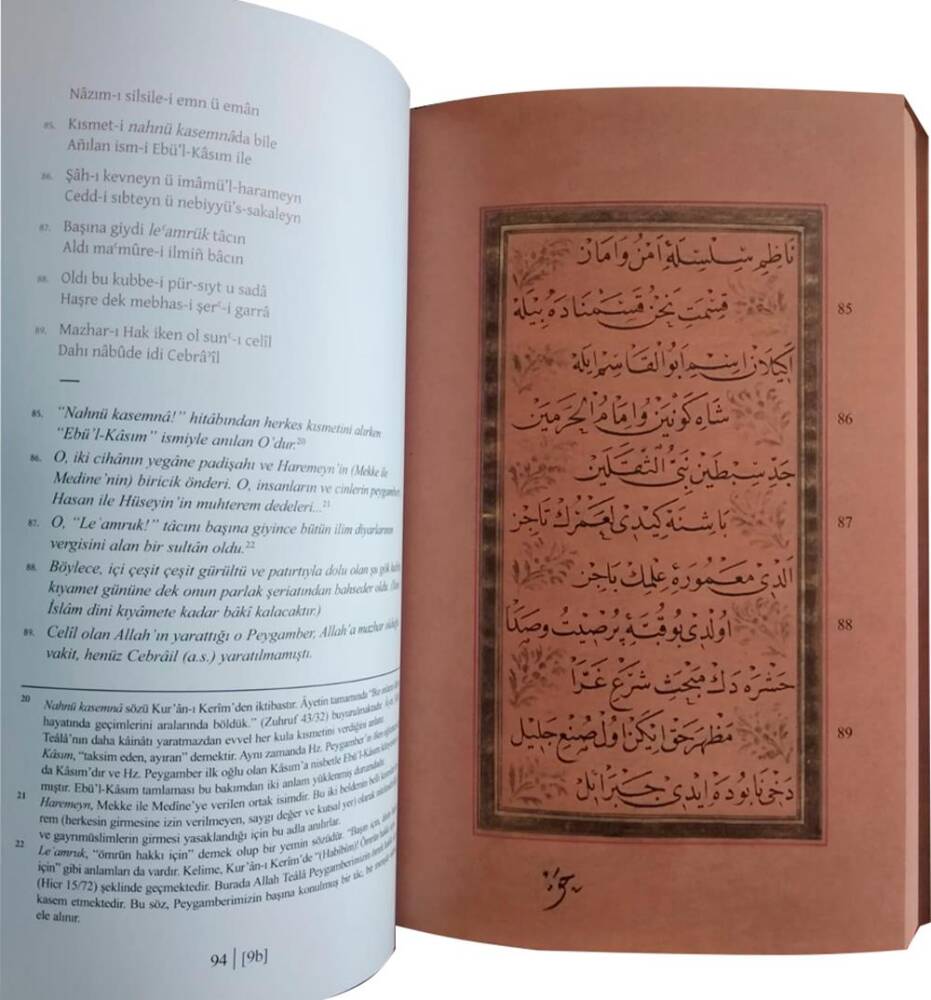 Nâzım-ı silsile-i emn ü emân
85. Kısmet-i nahnü kasemnâda bile
Añılan ism-i Ebü’l-Kâsım ile
86. Şâh-ı kevneyn ü imâmü’l-harameyn
Cedd-i sıbteyn ü nebiyyü’s-sakaleyn
87. Başına giydi leʿamrük tâcın
Aldı maʿmûre-i ilmiñ bâcın
88. Oldı bu kubbe-i pür-sıyt u sadâ
Haşre dek mebhas-i şerʿ-i garrâ
89. Mazhar-ı Hak iken ol sunʿ-ı celîl
Dahı nâbûde idi Cebrâʾîl
85. “Nahnü kasemnâ!” hitâbından herkes kısmetini alırken
“Ebü’l-Kâsım” ismiyle anılan O’dur.20
86. O, iki cihânın yegâne padişahı ve Haremeyn’in (Mekke ile
Medine’nin) biricik önderi. O, insanların ve cinlerin peygamberi,
Hasan ile Hüseyin’in muhterem dedeleri...21
87. O, “Leʿamruk!” tâcını başına giyince bütün ilim diyarlarının
vergisini alan bir sultân oldu.22
88. Böylece, içi çeşit çeşit gürültü ve patırtıyla dolu olan şu gök
kıyamet gününe dek onun parlak şeriatından bahseder oldu.
İslâm dini kıyâmete kadar bâkî kalacaktır.)
89. Celîl olan Allah’ın yarattığı o Peygamber, Allah’a mazhar
vakit, henüz Cebrâil (a.s.) yaratılmamıştı.
20 Nahnü kasemnâ sözü Kur’ân-ı Kerîm’den iktibastır. Âyetin tamamında “Biz
hayatında geçimlerini aralarında böldük.” (Zuhruf 43/32) buyurulmaktadır.
Teâlâ’nın daha kâinâtı yaratmazdan evvel her kula kısmetini verdiğini anlatır.
Kâsım, “taksim eden, ayıran” demektir. Aynı zamanda Hz. Peygamber’in
da Kâsım’dır ve Hz. Peygamber ilk oğlu olan Kâsım’a nisbetle Ebü’l-Kâsım
mıştır. Ebü’l-Kâsım tamlaması bu bakımdan iki anlam yüklenmiş durumdadır.
21 Haremeyn, Mekke ile Medîne’ye verilen ortak isimdir. Bu iki beldenin belli
rem (herkesin girmesine izin verilmeyen, saygı değer ve kutsal yer) olarak
ve gayrımüslimlerin girmesi yasaklandığı için bu adla anılırlar.
22 Leʿamruk, “ömrün hakkı için” demek olup bir yemin sözüdür. “Başın için,
için” gibi anlamları da vardır. Kelime, Kur’ân-ı Kerîm’de “(Habîbim)! Ömrün hakkı
(Hicr 15/72) şeklinde geçmektedir. Burada Allah Teâlâ Peygamberimizin
kasem etmektedir. Bu söz, Peygamberimizin başına konulmuş bir tâc, bir
ele alınır.
94 | [9b]
ناظم سلسلۀ امن و امان
قسمت نحن قسمناده بیله 85
اكیلان اسم ابو القاسم ایله
شاه كونین و امام الحرمین 86
جد سبطین نبی الثقلین
باشنه كیدی لعمرك تاجن 87
الدی معمورۀ علمك باجن
اولدی بو قبۀ پر صیت و صدا 88
حشره دك مبحث شرع غرا
مظهر حق ایكن اول صنع جلیل 89
دخی نابوده ایدی جبرائل